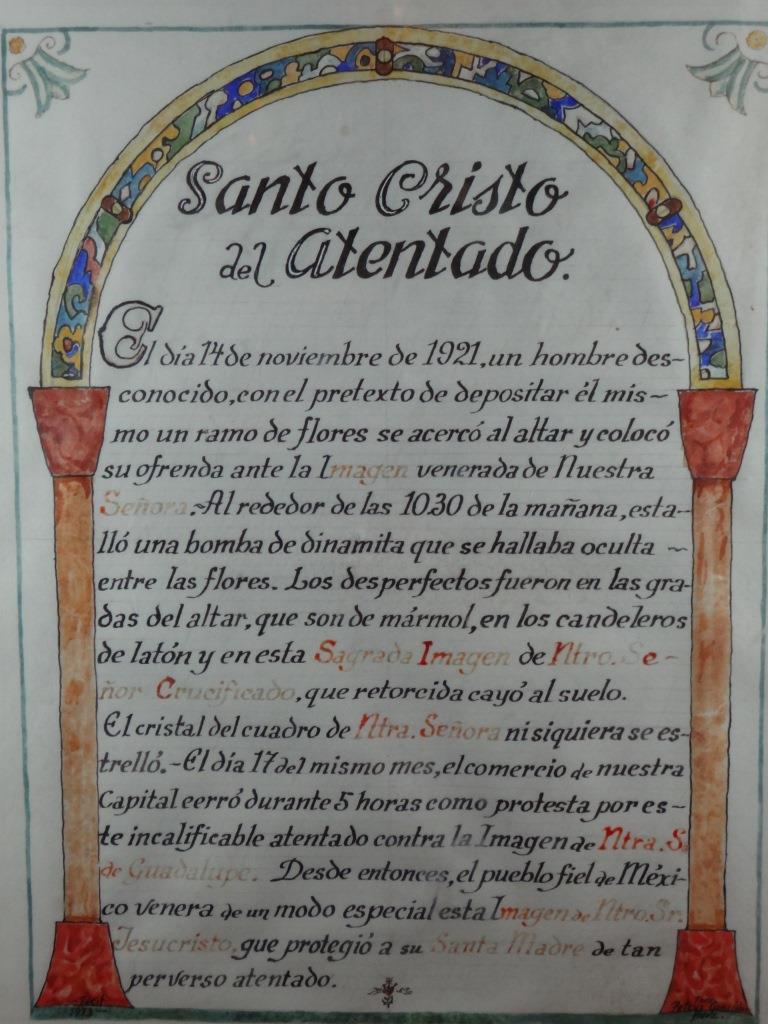 Santo Cristo
del Atentado.
El día 14 de noviembre de 1921, un hombre des-
conocido, con el pretexto de depositar él mis-
mo un ramo de flores se acercó al altar y colocó
su ofrenda ante la Imagen venerada de Nuestra
Señora.-Al rededor de las 10.30 de la mañana, esta-
lló una bomba de dinamita que se hallaba oculta ~
entre las flores. Los desperfectos fueron en las gra-
das del altar, que son de mármol, en los candeleros
de latón y en esta Sagrada Imagen de Ntro. Se-
ñor Crucificado, que retorcida cayó al suelo.
El cristal del cuadro de Ntra. Señora ni siquiera se es-
trelló.-El día 17 del mismo mes, el comercio de nuestra
Capital cerró durante 5 horas como protesta por es-
te incalificable atentado contra la Imagen de Ntra. S.
de Guadalupe. Desde entonces, el pueblo fiel de Méxi-
co venera de un modo especial esta Imagen de Ntro. Sr.
Jesucristo, que protegió a su Santa Madre de tan
perverso atentado.